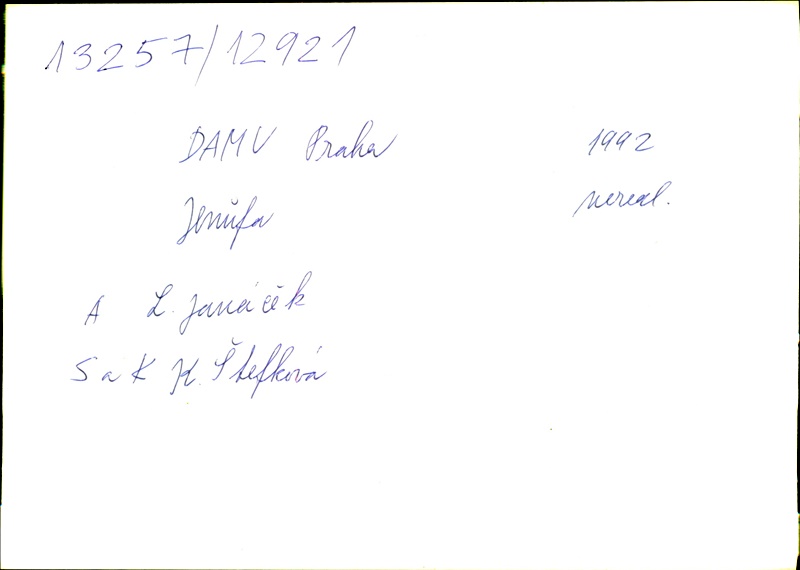 13257/12921
DAMU Praha 1992
Jenůfa nereal.
A L. Janáček
S a K K. Štefková